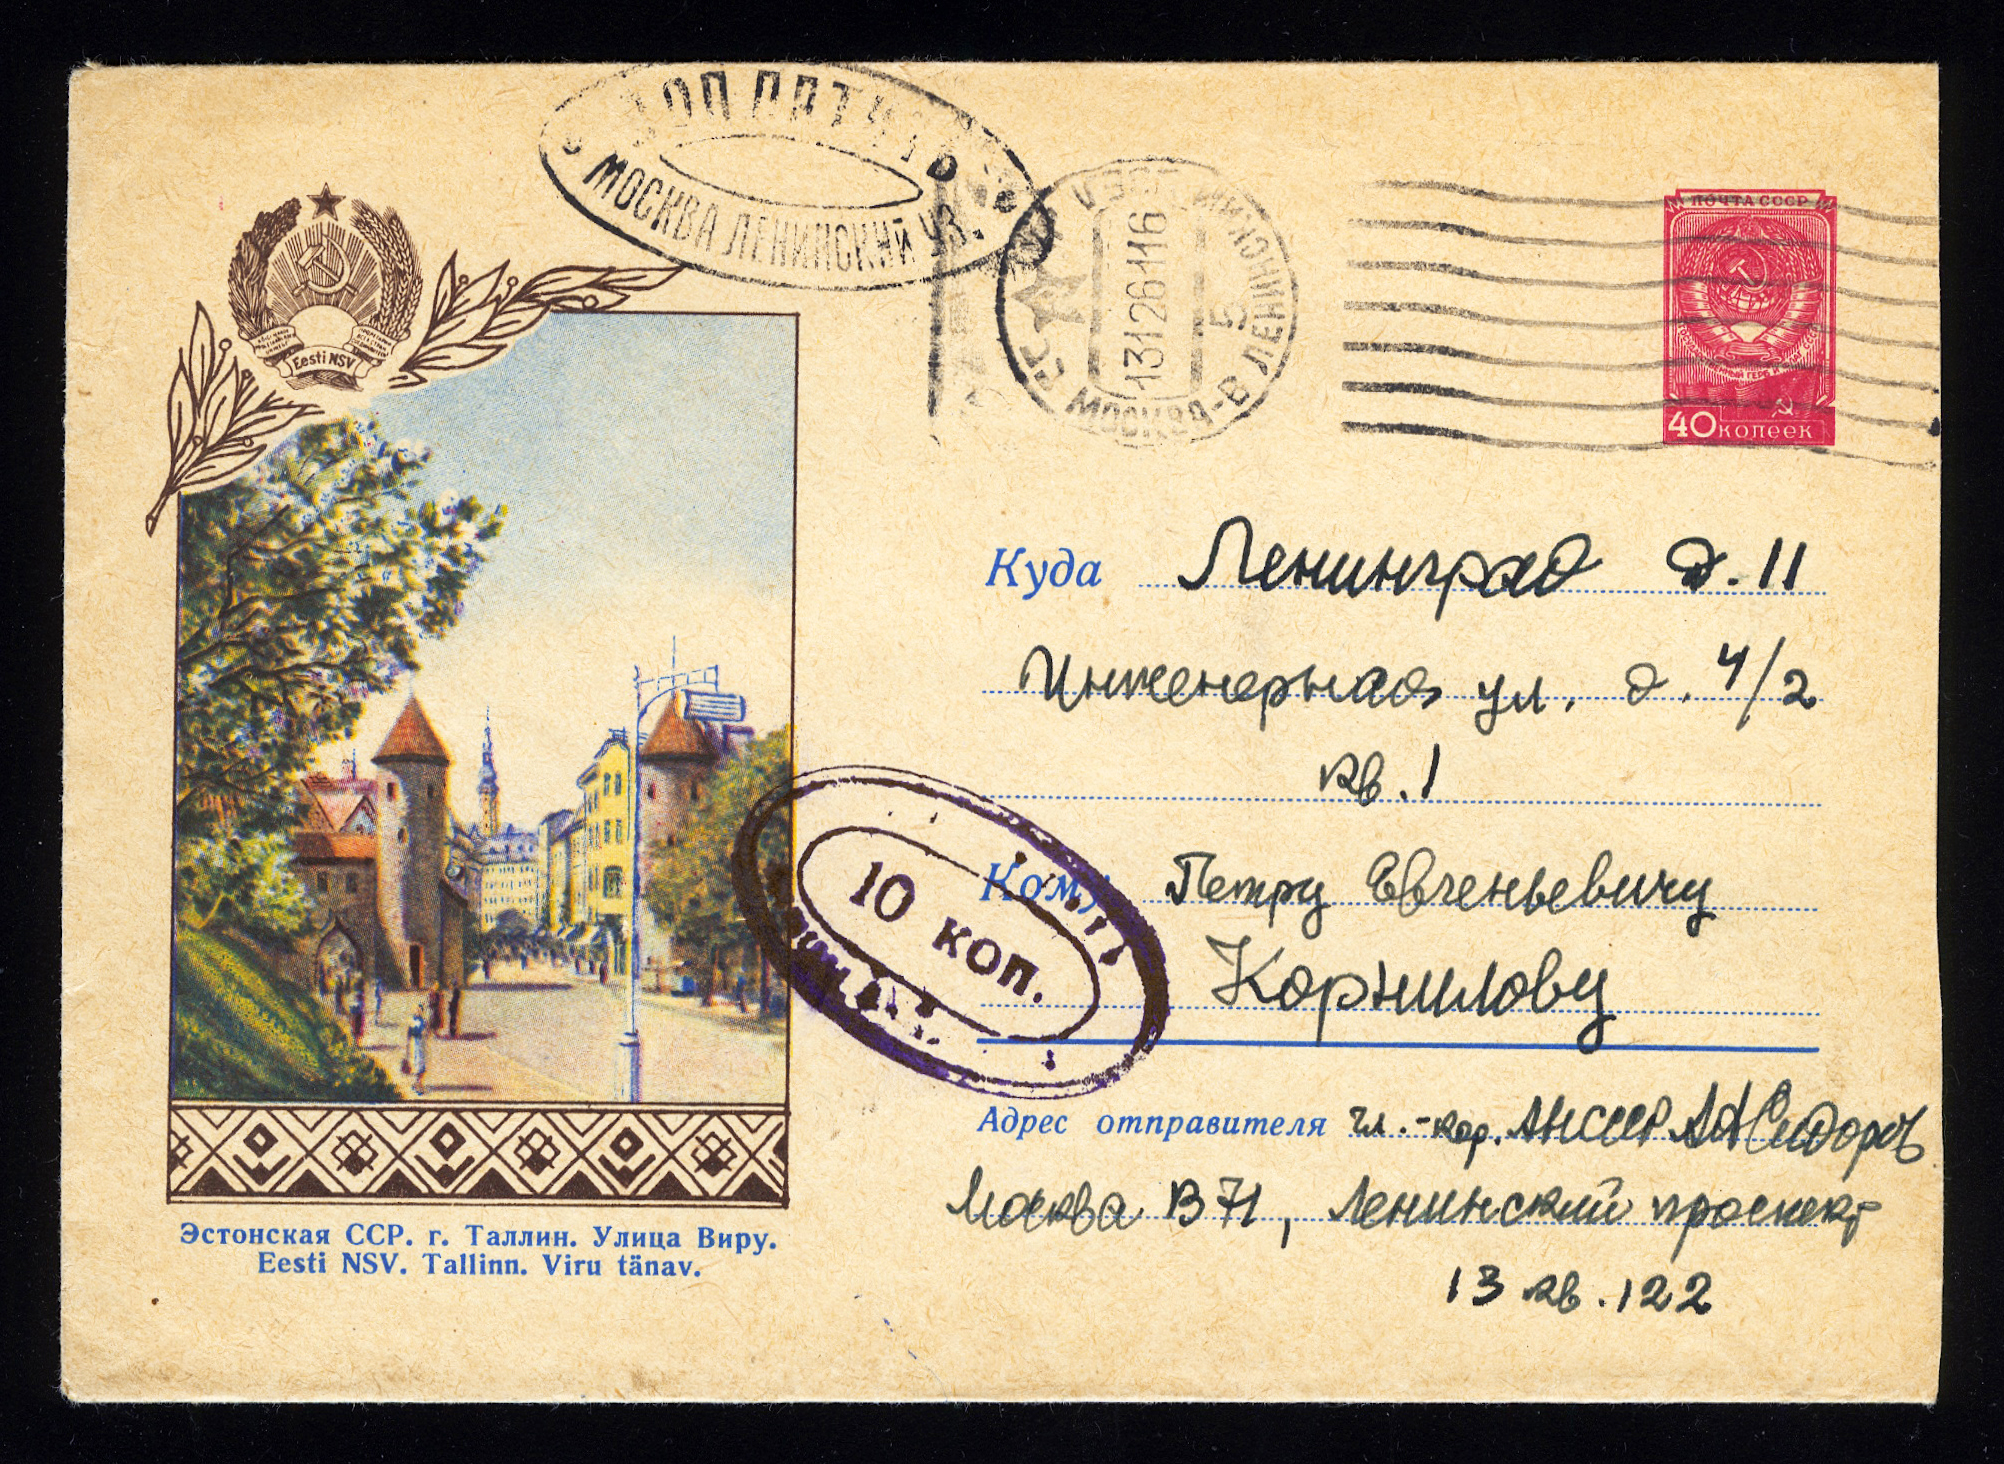 ДОПЛАТИТЬ
МОСКВА ЛЕНИНСКИЙ УЗ.
МОСКВА-В ЛЕНИНСКИЙ
131261116
5
ПОЧТА СССР
40 копеек
Eesti NSV
Куда Ленинград Д. 11
Инженерная ул. д. 4/2
кв. 1
Кому Петру Евгеньевичу
Корнилову
10 коп.
Адрес отправителя чл.-кор. АН СССР АА Сидоров
Москва В71, Ленинский проспект
13 кв. 122
Эстонская ССР. г. Таллин. Улица Виру.
Eesti NSV. Tallinn. Viru tänav.